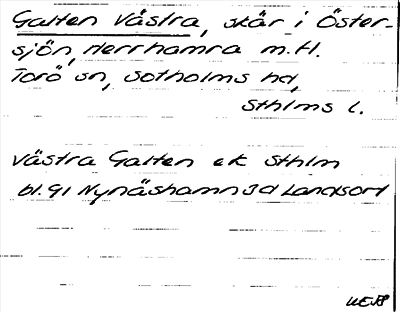 Galten Västra, skär i Öster-
sjön, Herrhamra m.fl.
Torö sn, Sotholms hd,
Sthlms l.
Västra Galten ek Sthlm
bl. 91 Nynäshamn 3d Landsort